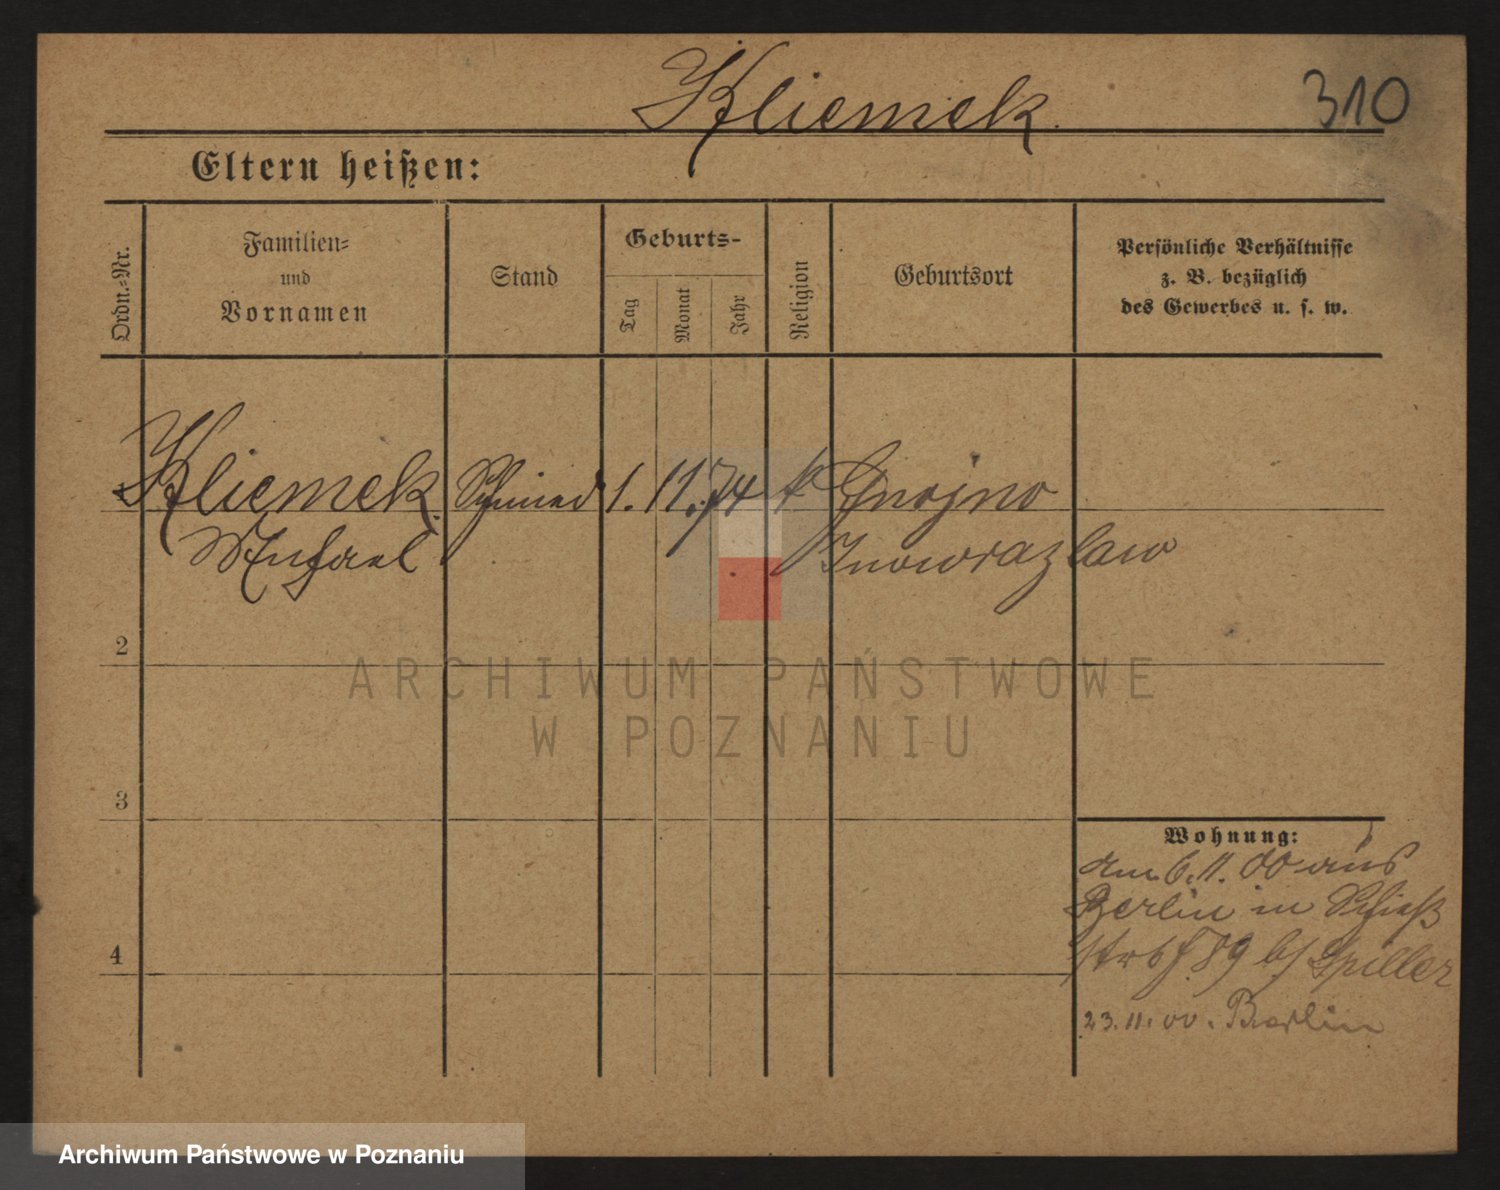 Kliemek.
310
Eltern heißen:
Ordn.-Nr.
Familien-
und
Vornamen
Stand
Geburts-
Tag
Monat
Jahr
Religion
Geburtsort
Persönliche Verhältnisse
z. B. bezüglich
des Gewerbes u. s. w.
Kliemek. Schmied 1. 11. 74 k Gnojno
Michael Inowrazlaw
2
3
4
Wohnung:
am 6.11.00 aus
Berlin in Schieß
strs 89 b/ Spiller
23.11.00. Berlin
ARCHIWUM PAŃSTWOWE
W POZNANIU
Archiwum Państwowe w Poznaniu